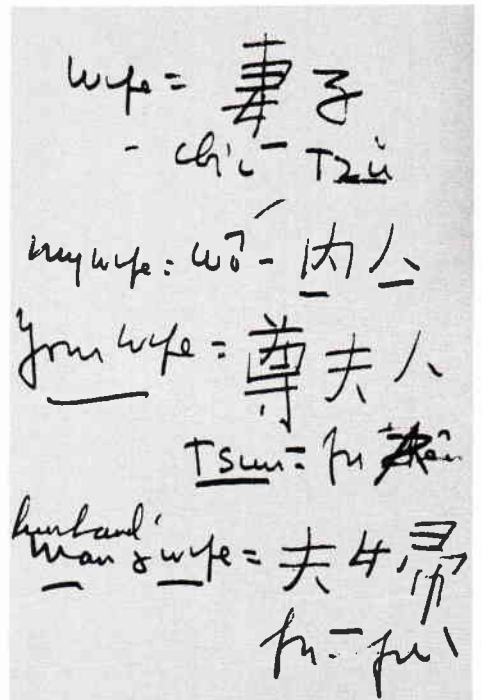 wife = 妻子
- ch'i - Tzu
my wife : wo - 内人
Your wife = 尊夫人
Tsun = fu
husband
Man & wife = 夫婦
fu - fu